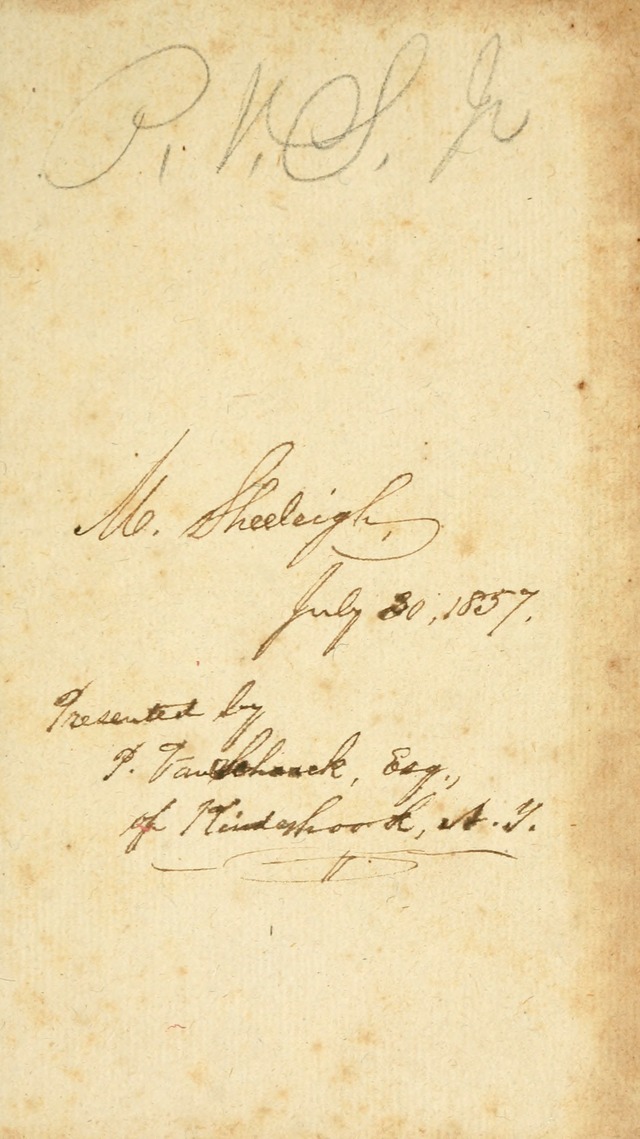 P. V. S. Jr
M. Sheeleigh,
July 30, 1857.
Presented by
P. Van Schaack, Esq.,
of Kinderhook, N. Y.